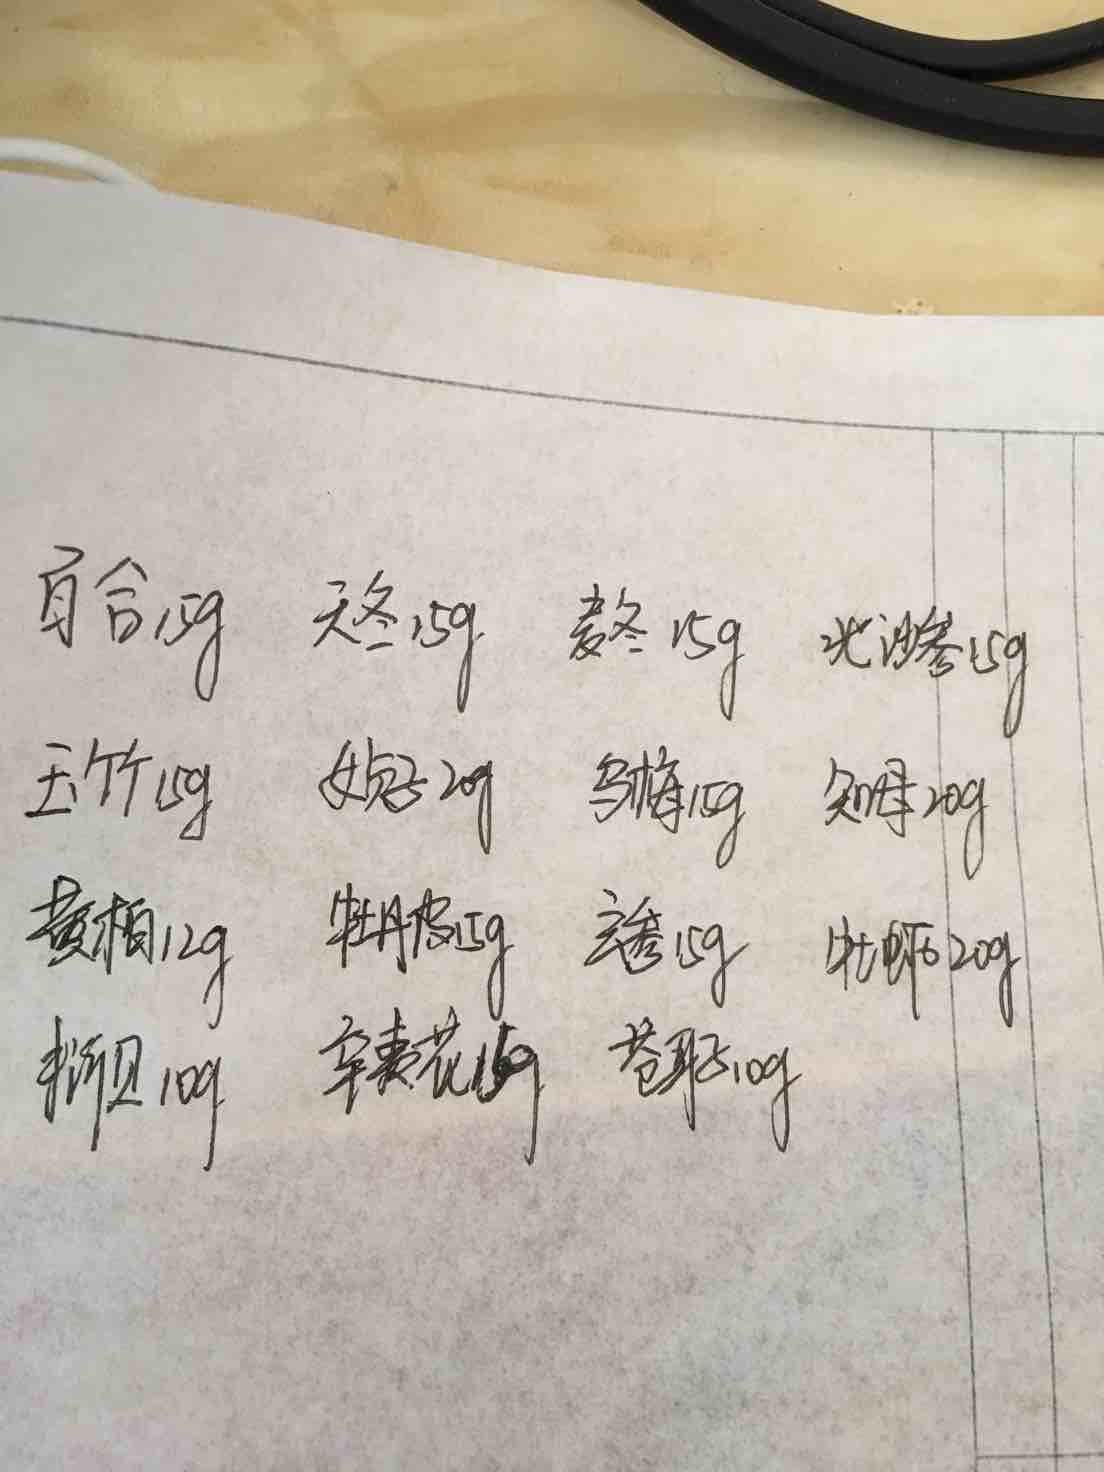 百合15g 天冬15g 麦冬15g 北沙参15g
玉竹15g 女贞子20g 乌梅15g 知母20g
黄柏12g 牡丹皮15g 玄参15g 牡蛎20g
浙贝10g 辛夷花15g 苍耳子10g